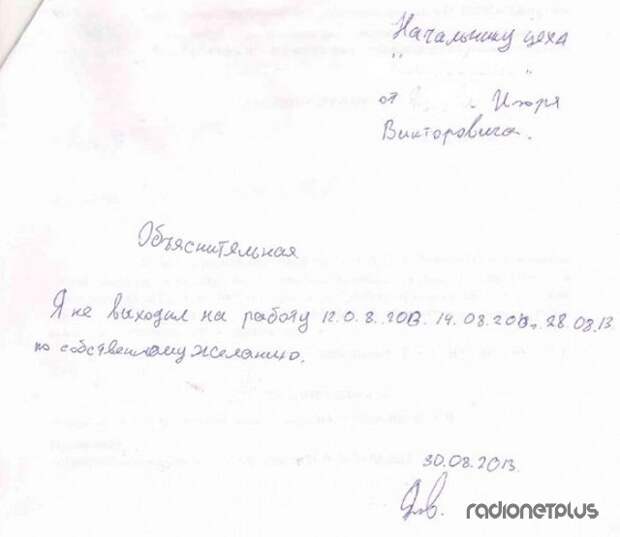 Начальнику цеха
" "
от Игоря
Викторовича.
Объяснительная
Я не выходил на работу 12.0.8.2013. 14.08.2013. 28.08.13
по собственному желанию.
30.08.2013
radionetplus